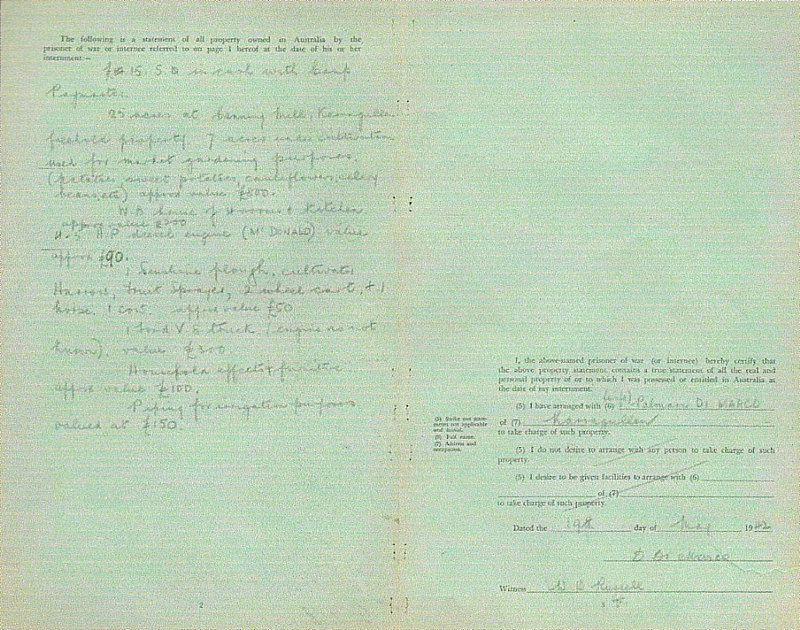 The following is a statement of all property owned in Australia by the
prisoner of war or internee referred to on page 1 hereof at the date of his or her
internment:—
15. 5. 0 in cash with Camp
Paymaster.
25 acres at Canning Mill, Karragullen
freehold property 7 acres under cultivation
used for market gardening purposes.
(potatoes, sweet potatoes, cauliflowers, celery
beans, etc) approx value £800.
W.B house of 4 rooms & kitchen
approx value £200
H.P diesel engine (McDONALD) value
approx £90.
1 Sunshine plough, cultivator
Harrow, fruit sprayer, 2 wheel cart, & 1
horse. 1 cow. approx value £50
1 Ford V.8 truck (engine no not
known). value £300.
Household effects & furniture
approx value £100.
Piping for irrigation purposes
valued at £150.
2
I, the above-named prisoner of war (or internee) hereby certify that
the above property statement contains a true statement of all the real and
personal property of or to which I was possessed or entitled in Australia at
the date of my internment.
(wife)
(5) I have arranged with (6) Palmari Di MARCO
of (7) Karragullen
to take charge of such property.
(5) Strike out state-
ments not applicable
and initial.
(6) Full name.
(7) Address and
occupation.
(5) I do not desire to arrange with any person to take charge of such
property.
(5) I desire to be given facilities to arrange with (6)
of (7)
to take charge of such property.
Dated the 19th day of May 1942
D Di Marco
Witness W B Russell
3